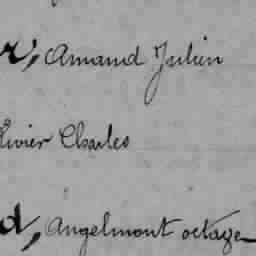 r, Amand Julien
livier Charles
d, Angelmont octave